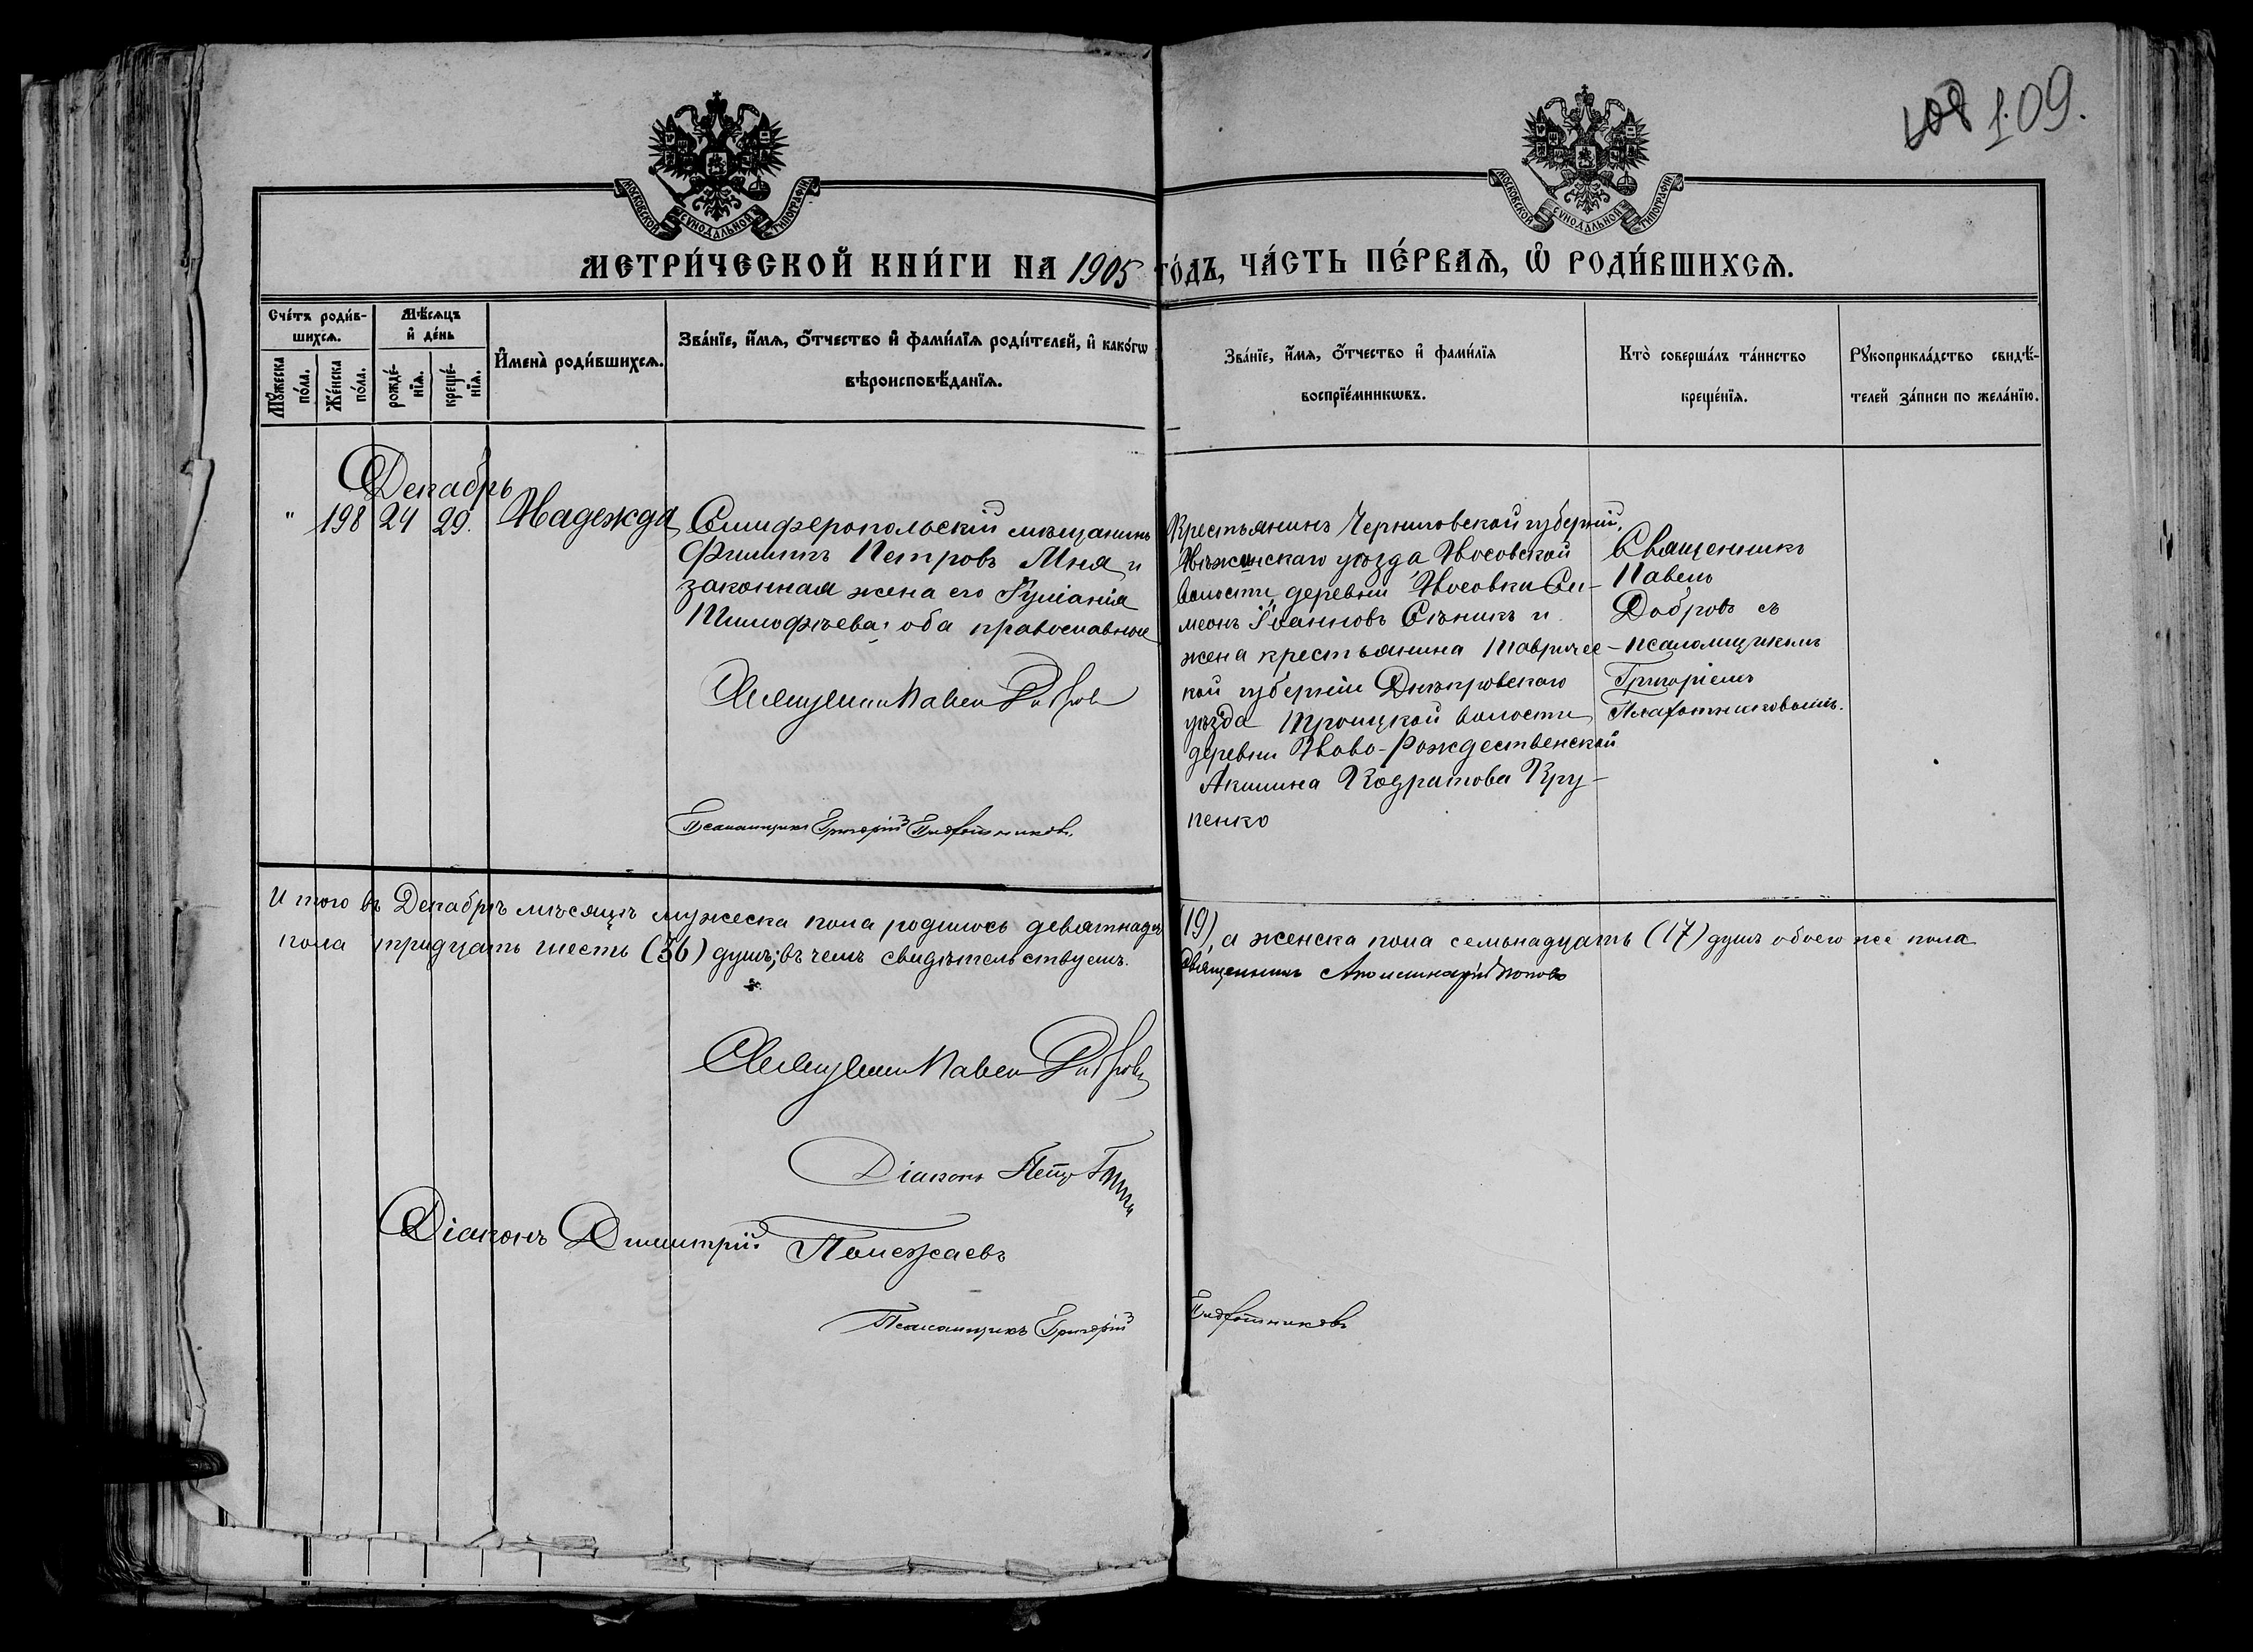 108 109.
МОСКОВСКОЙ СѴНОДАЛЬНОЙ ТИПОГРАФІИ
МОСКОВСКОЙ СѴНОДАЛЬНОЙ ТИПОГРАФІИ
МЕТРИ́ЧЕСКОЙ КНИ́ГИ НА 1905 ГО́ДЪ, ЧА́СТЬ ПЕ́РВАѦ, Ѡ҆ РОДИ́ВШИХСѦ.
Сче́тъ роди́в-
шихсѧ.
Мꙋ́жеска по́ла.
Же́нска по́ла.
Мѣ́сѧцъ
и҆ де́нь
рожде́-
нїѧ.
креще́-
нїѧ.
И҆мена̀ роди́вшихсѧ.
Зва́нїе, и҆́мѧ, ѻ҆́тчество и҆ фами́лїѧ роди́телей, и҆ како́гѡ
вѣроисповѣ́данїѧ.
Зва́нїе, и҆́мѧ, ѻ҆́тчество и҆ фами́лїѧ
воспрїе́мникѡвъ.
Кто̀ соверша́лъ та́инство
креще́нїѧ.
Рꙋкоприкла́дство свидѣ́-
телей за́писи по жела́нїю.
Декабрь
" 198 24 29. Надежда
Симферопольскій мѣщанинъ
Филиппъ Петровъ Мна и
законная жена его Іуліанія
Тимофѣева, оба православные
Священникъ Павелъ Добровъ
Псаломщикъ Григорій Плафотниковъ.
Крестьянинъ Черниговской губерніи,
Нѣжинскаго уѣзда Носовской
волости, деревни Носовки Си-
меонъ Іоанновъ Сѣникъ и
жена крестьянина Тавричес-
кой губерніи Днѣпровскаго
уѣзда Троицкой волости
деревни Ново-Рождественской
Акилина Кодратова Кру-
пенко
Священникъ
Павелъ
Добровъ съ
псаломщикомъ
Григоріемъ
Плафотниковымъ.
Итого въ Декабрѣ мѣсяцѣ мужеска пола родилось девятнадцать (19), а женска пола семьнадцать (17) душъ обоего же пола
пола тридцать шесть (36) душъ; въ чемъ свидѣтельствуемъ.
Священникъ Аполлинарій Поповъ
Священникъ Павелъ Добровъ
Діаконъ Петръ
Діаконъ Димитрій Полежаевъ
Псаломщикъ Григорій Плафотниковъ